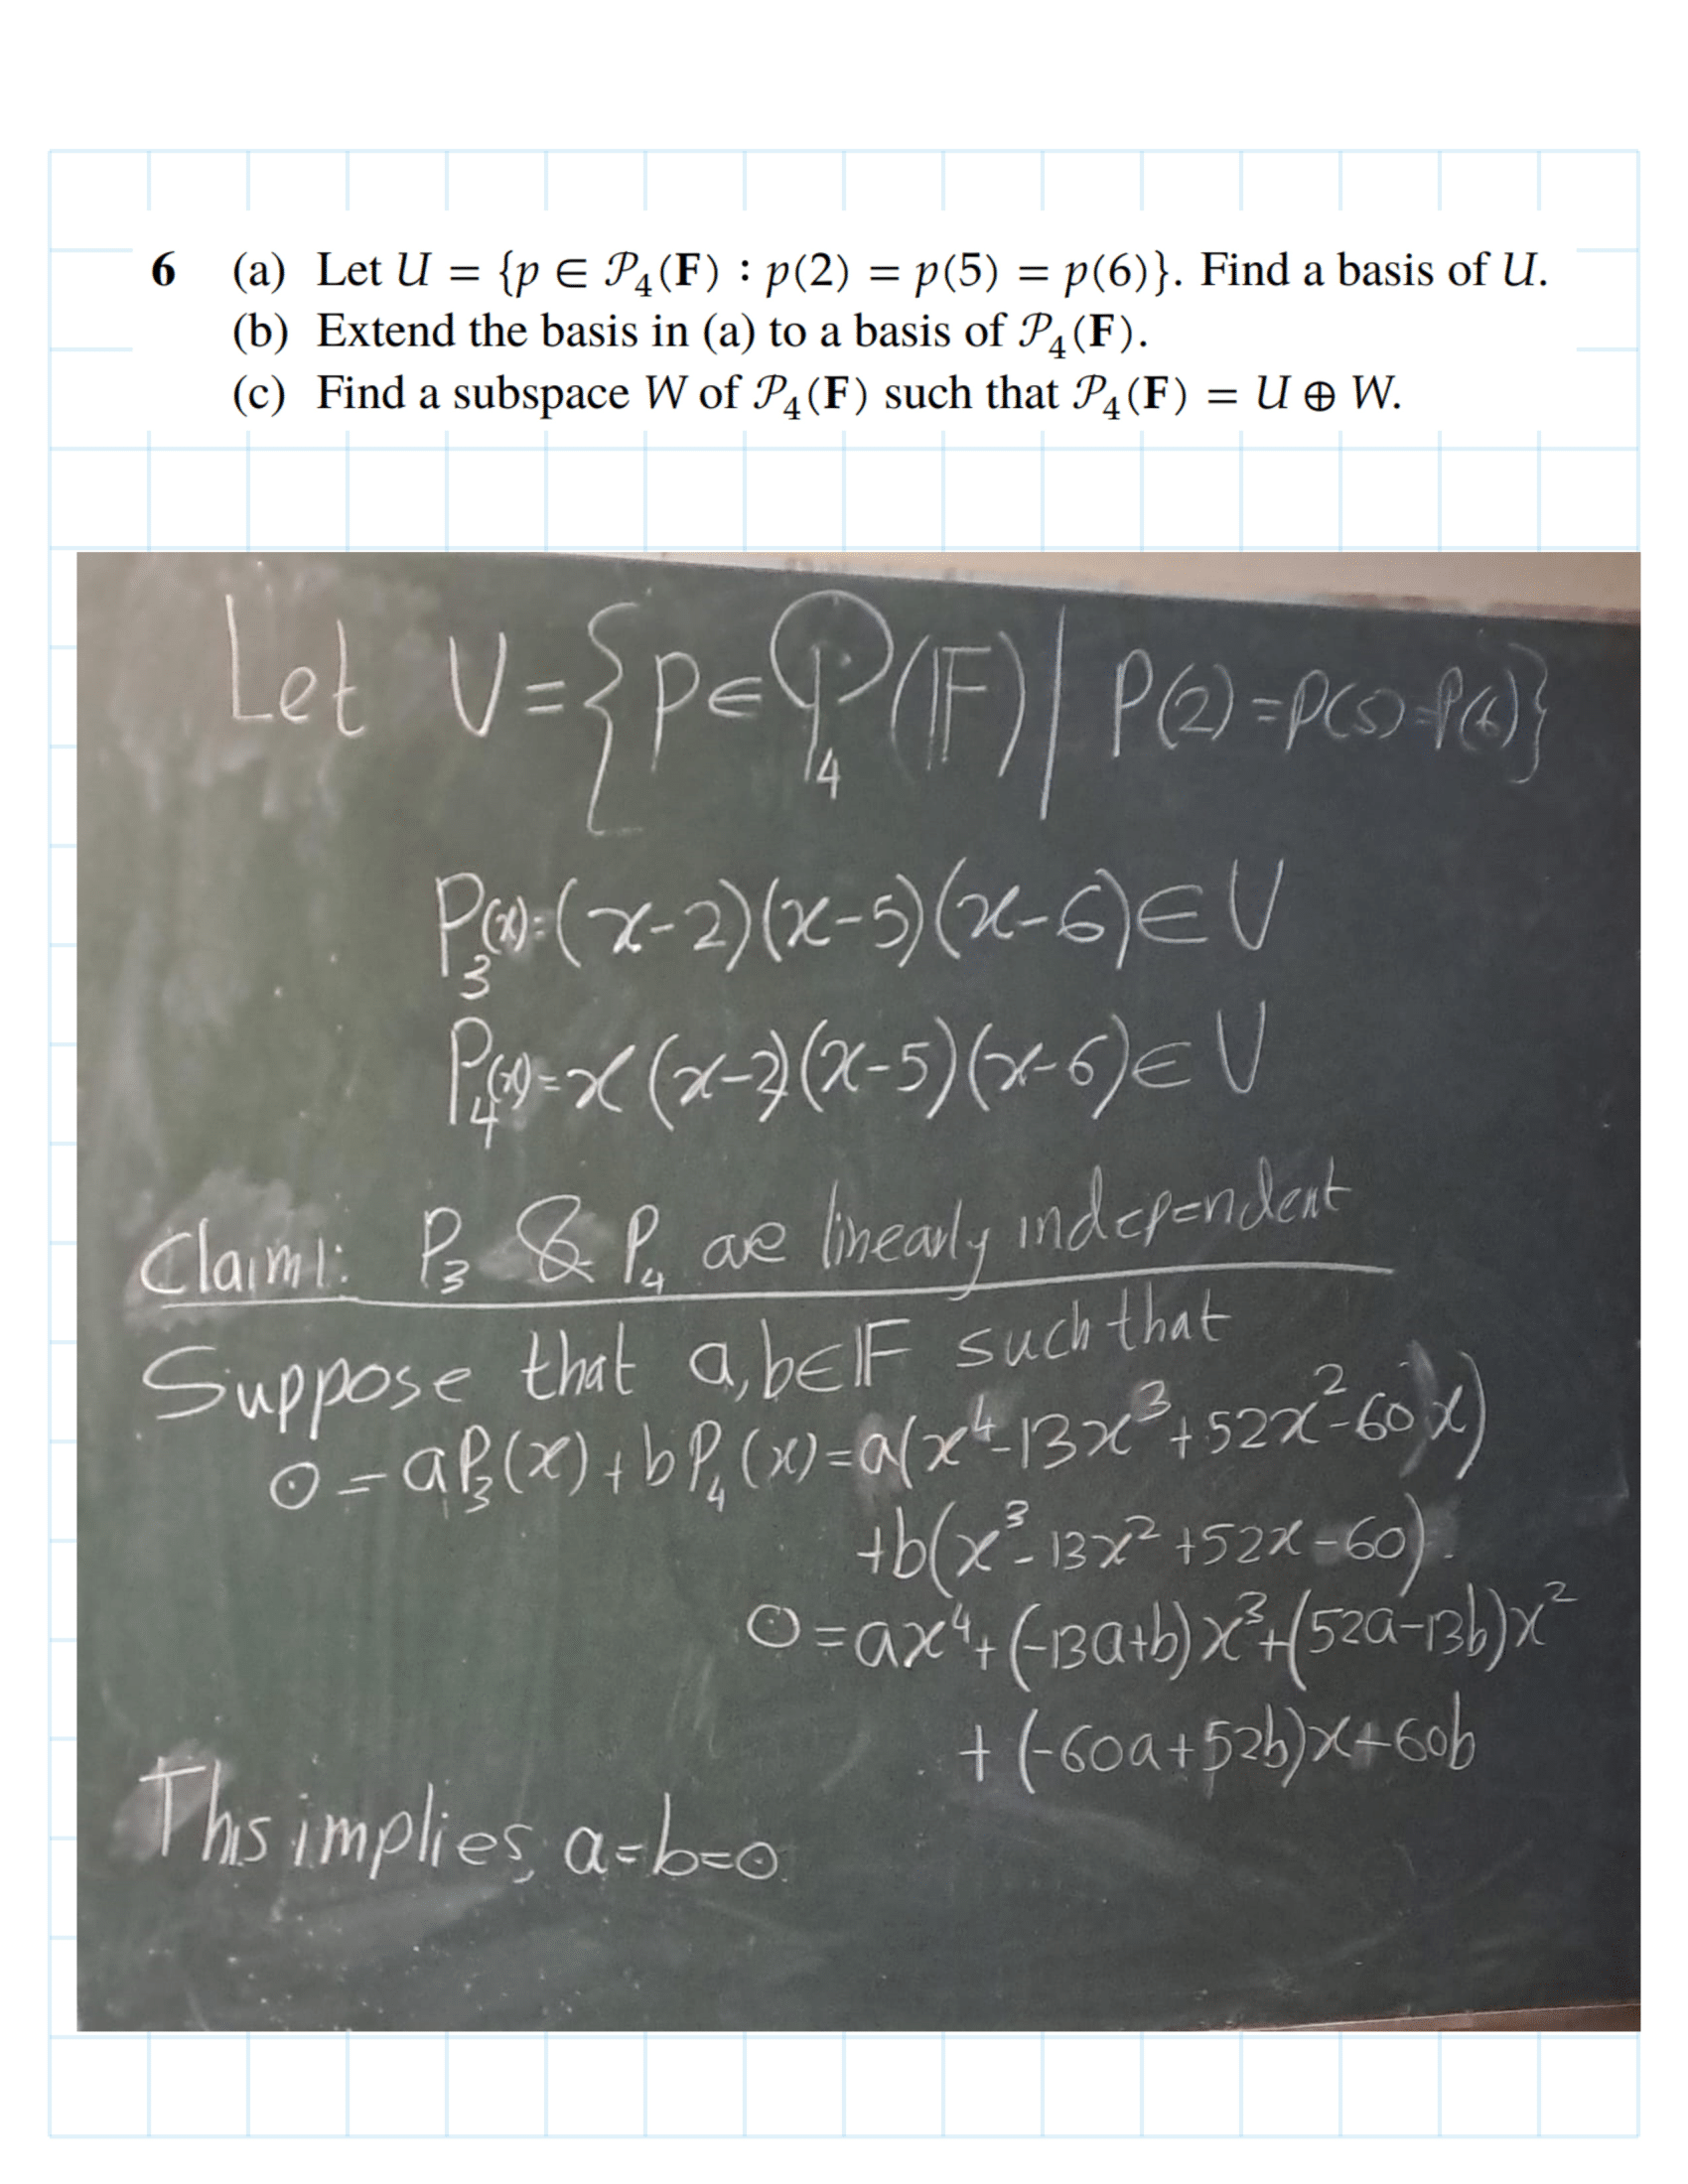 6 (a) Let U = {p ∈ 𝒫₄(F) : p(2) = p(5) = p(6)}. Find a basis of U.
(b) Extend the basis in (a) to a basis of 𝒫₄(F).
(c) Find a subspace W of 𝒫₄(F) such that 𝒫₄(F) = U ⊕ W.
Let U = { P ∈ 𝒫₄(𝔽) | P(2) = P(5) = P(6) }
P₃(x) = (x-2)(x-5)(x-6) ∈ U
P₄(x) = x(x-2)(x-5)(x-6) ∈ U
Claim1: P₃ & P₄ are linearly independent
Suppose that a,b ∈ 𝔽 such that
0 = aP₃(x) + bP₄(x) = a(x⁴ - 13x³ + 52x² - 60x)
+b(x³ - 13x² + 52x - 60)
0 = ax⁴ + (-13a+b)x³ + (52a-13b)x²
+ (-60a+52b)x - 60b
This implies a=b=0